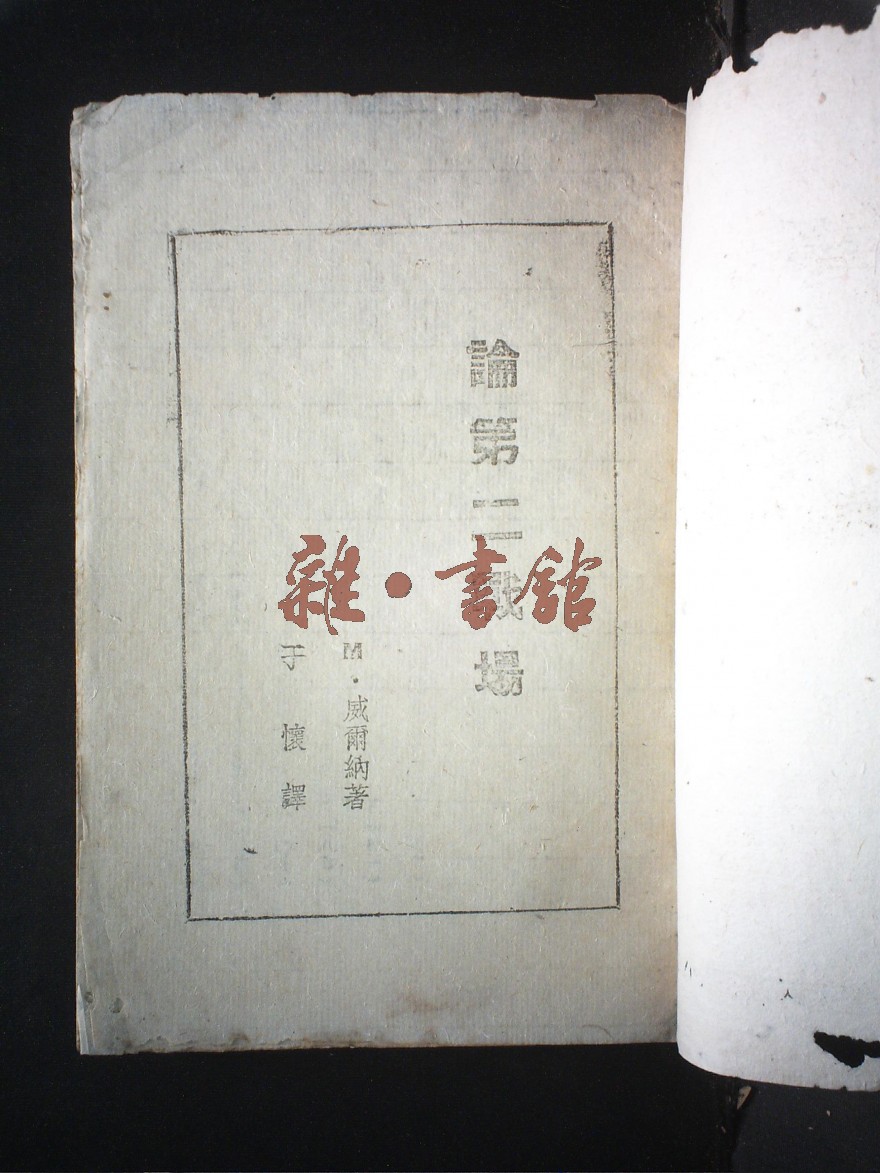 論第二戰場
M·威爾納著
于懷譯
雜·書館